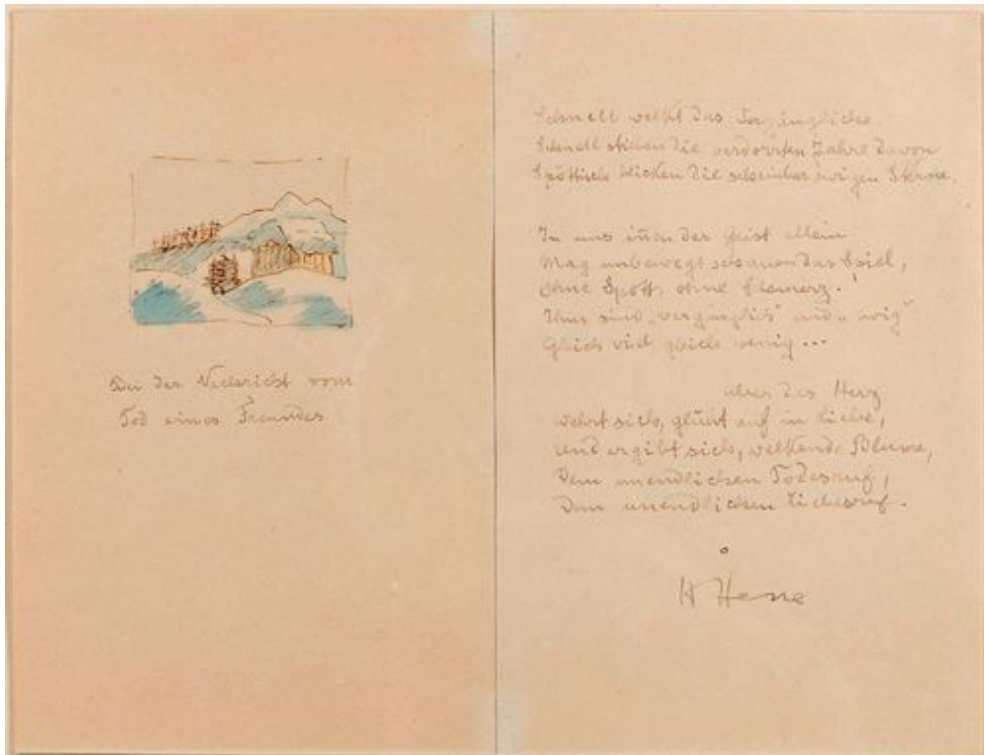 Bei der Nachricht vom
Tod eines Freundes
Schnell welkt das Vergängliche.
Schnell stieben die verdorrten Jahre davon
Spöttisch blicken die scheinbar ewigen Sterne.
In uns innen der Geist allein
Mag unbewegt schauen das Spiel,
Ohne Spott, ohne Schmerz.
Ihm sind „vergänglich“ und „ewig“
Gleich viel gleich wenig...
aber das Herz
Wehrt sich, glüht auf in Liebe,
Und ergibt sich, welkende Blume,
Dem unendlichen Todesruf,
Dem unendlichen Liebesruf.
H Hesse